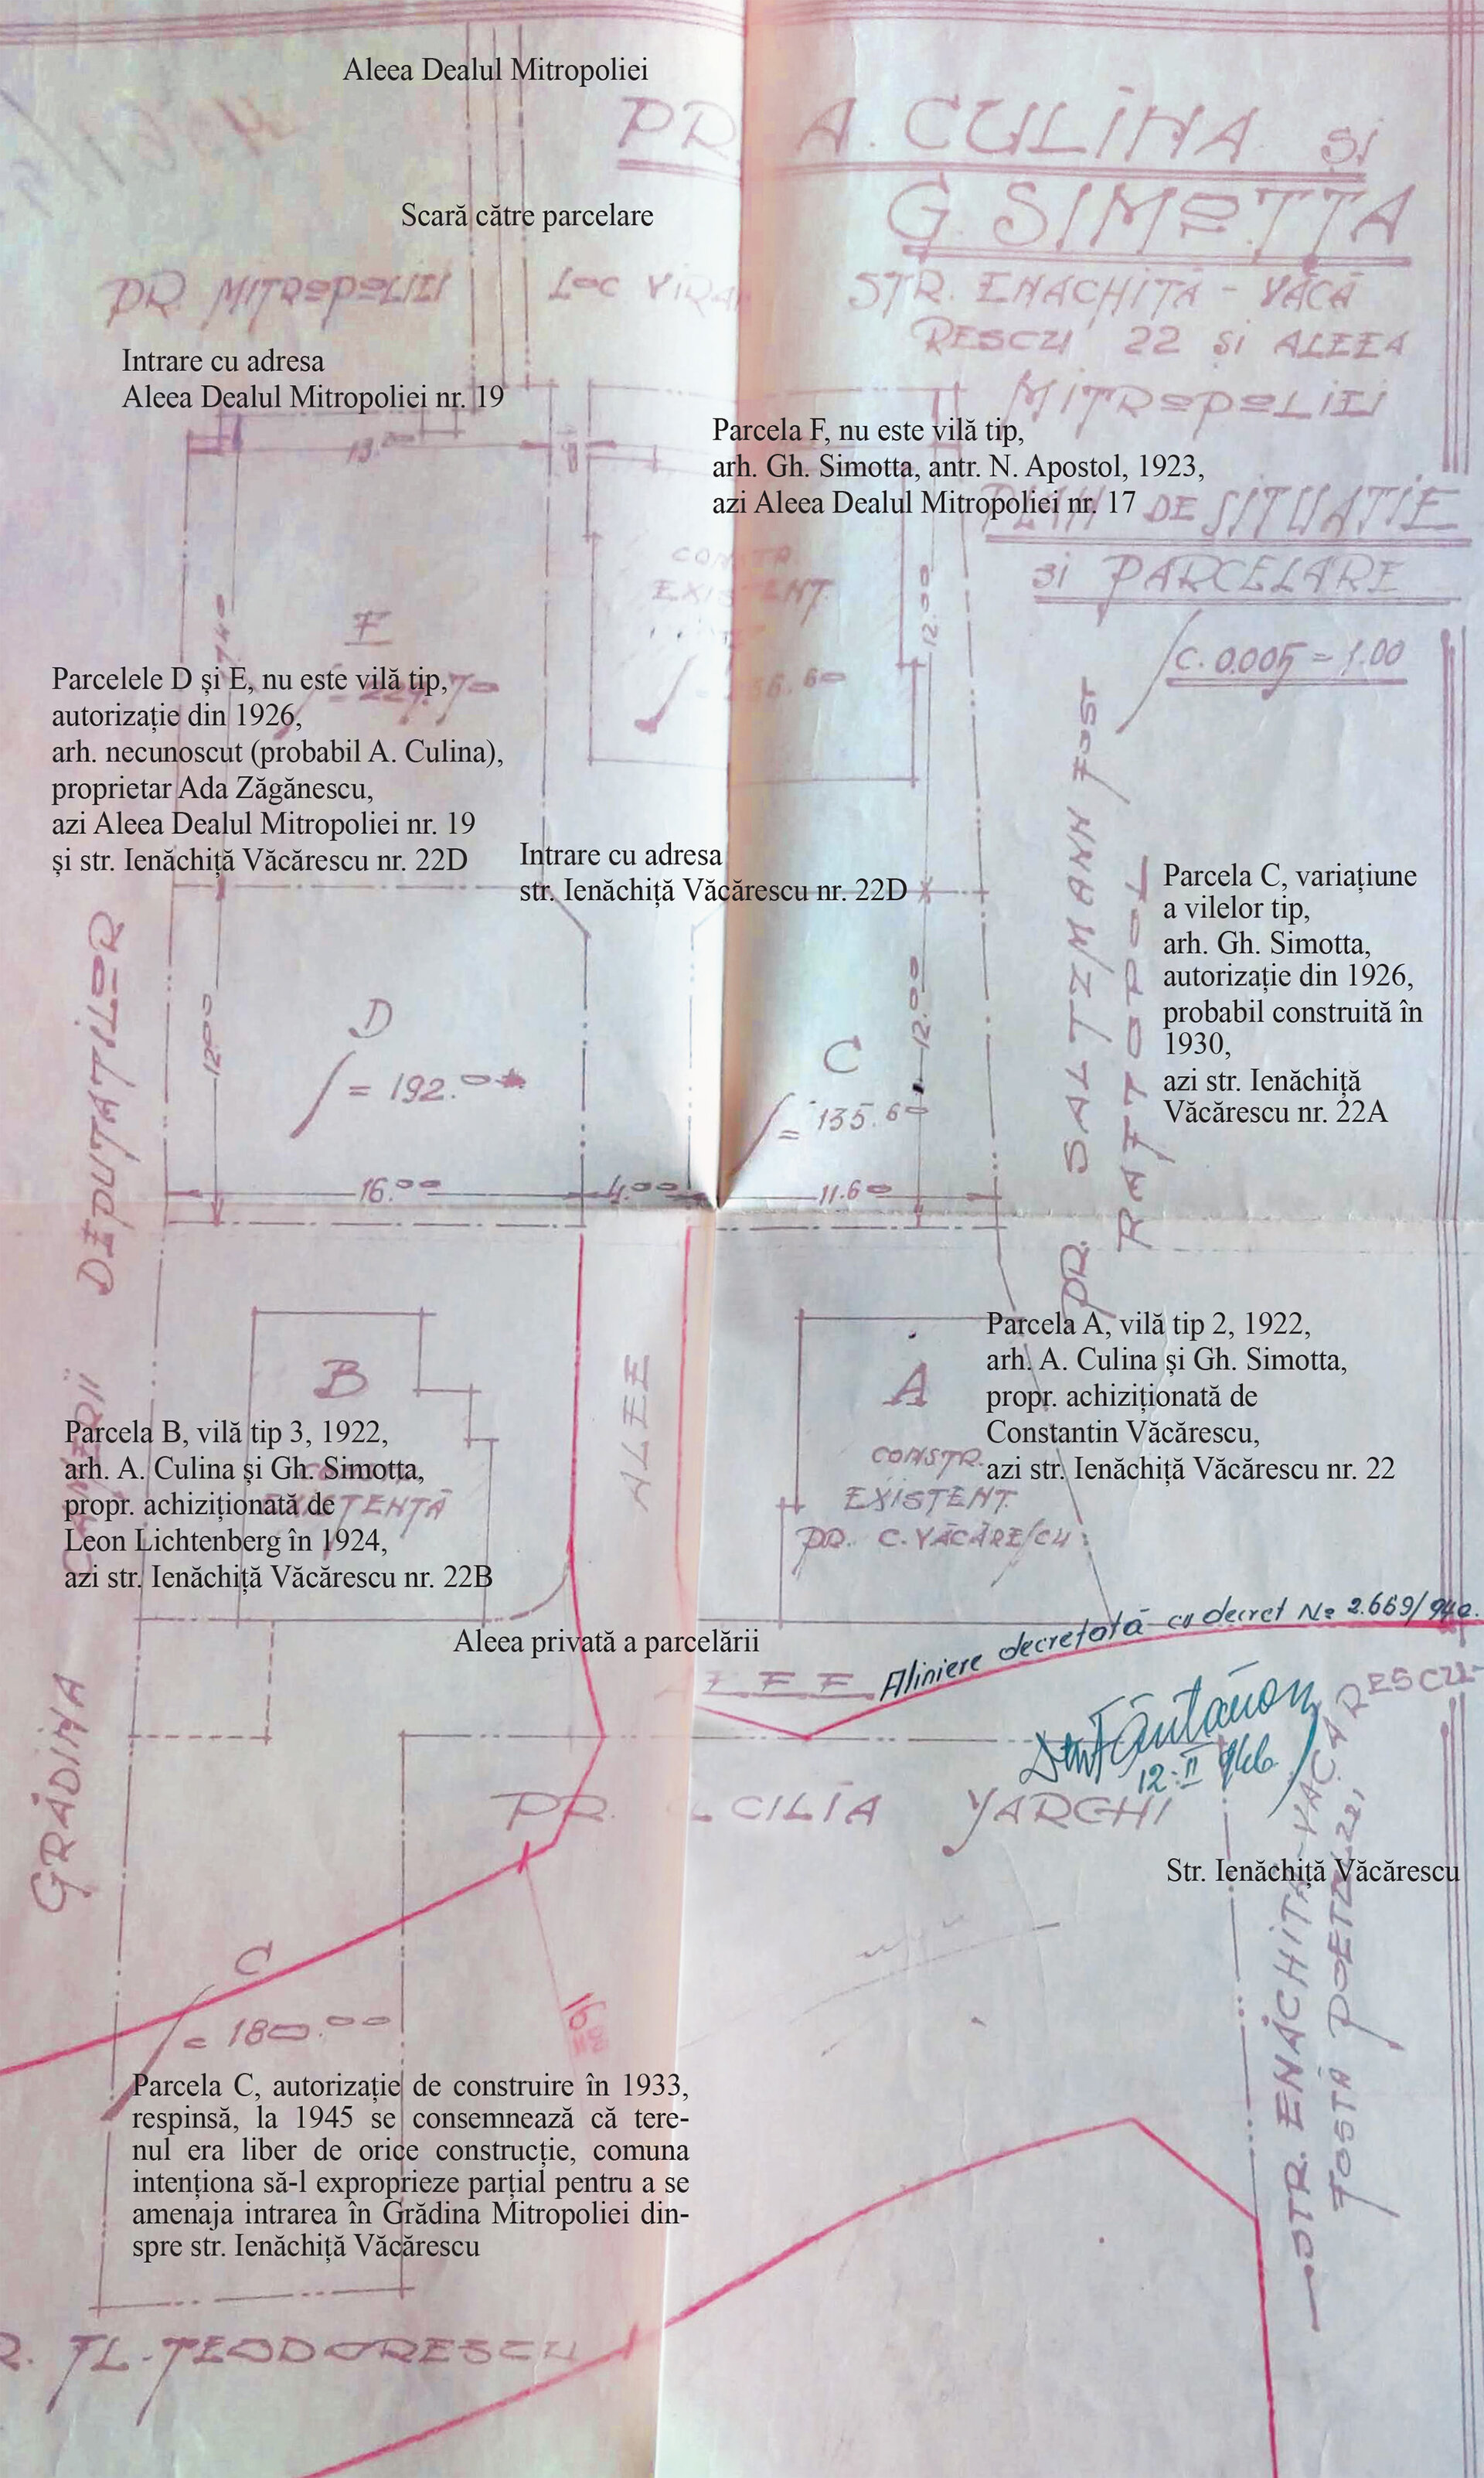 Aleea Dealul Mitropoliei
PR. A. CULINA si
G. SIMOTTA
Scară către parcelare
PR. MITROPOLIEI
LOC VIRAN
STR. ENACHIȚĂ - VĂCĂ
RESCU 22 și ALEEA
MITROPOLIEI
Intrare cu adresa
Aleea Dealul Mitropoliei nr. 19
13.00
Parcela F, nu este vilă tip,
arh. Gh. Simotta, antr. N. Apostol, 1923,
azi Aleea Dealul Mitropoliei nr. 17
PLAN DE SITUATIE
si PARCELARE
C. 0.005 = 1.00
CONSTR.
EXISTENT.
12.00
Parcelele D și E, nu este vilă tip,
autorizație din 1926,
arh. necunoscut (probabil A. Culina),
proprietar Ada Zăgănescu,
azi Aleea Dealul Mitropoliei nr. 19
și str. Ienăchiță Văcărescu nr. 22D
Intrare cu adresa
str. Ienăchiță Văcărescu nr. 22D
PR. SALTZMANN FOST
RAFTOPOL
Parcela C, variațiune
a vilelor tip,
arh. Gh. Simotta,
autorizație din 1926,
probabil construită în
1930,
azi str. Ienăchiță
Văcărescu nr. 22A
D
= 192.00
12.00
C
= 135.60
12.00
16.00
4.00
11.60
GRĂDINA CAMERII DEPUTATILOR
B
EXISTENTĂ
ALEE
A
CONSTR.
EXISTENT.
PR. C. VĂCĂRESCU
Parcela A, vilă tip 2, 1922,
arh. A. Culina și Gh. Simotta,
propr. achiziționată de
Constantin Văcărescu,
azi str. Ienăchiță Văcărescu nr. 22
Parcela B, vilă tip 3, 1922,
arh. A. Culina și Gh. Simotta,
propr. achiziționată de
Leon Lichtenberg în 1924,
azi str. Ienăchiță Văcărescu nr. 22B
Aleea privată a parcelării
Aliniere decretată cu decret No 2.669/940.
12.II 946
PR. CILIA VARGHI
Str. Ienăchiță Văcărescu
STR. ENĂCHIȚĂ-VĂCĂRESCU
FOSTĂ POETULUI
C
= 180.00
16
Parcela C, autorizație de construire în 1933,
respinsă, la 1945 se consemnează că tere-
nul era liber de orice construcție, comuna
intenționa să-l exproprieze parțial pentru a se
amenaja intrarea în Grădina Mitropoliei din-
spre str. Ienăchiță Văcărescu
R. FL. TEODORESCU